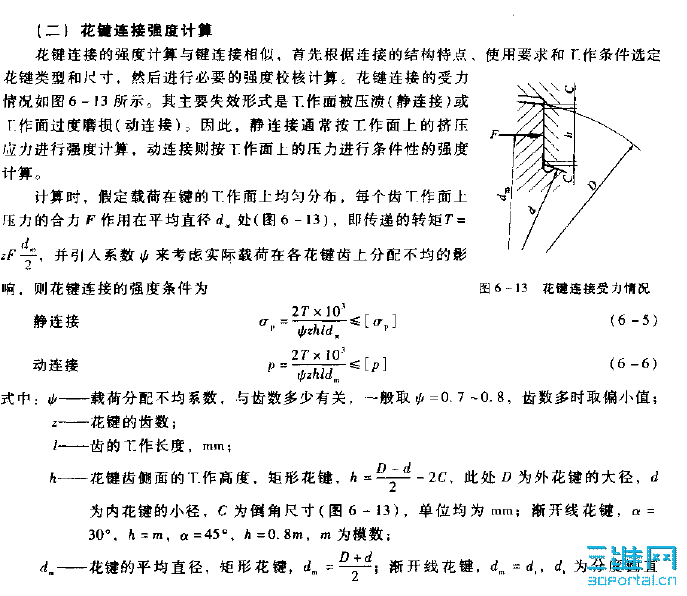 (二) 花键连接强度计算
花键连接的强度计算与键连接相似，首先根据连接的结构特点、使用要求和工作条件选定
花键类型和尺寸，然后进行必要的强度校核计算。花键连接的受力
情况如图6-13所示。其主要失效形式是工作面被压溃(静连接)或
工作面过度磨损(动连接)。因此，静连接通常按工作面上的挤压
应力进行强度计算，动连接则按工作面上的压力进行条件性的强度
计算。
计算时，假定载荷在键的工作面上均匀分布，每个齿工作面上
压力的合力F作用在平均直径dₘ处(图6-13)，即传递的转矩T=
zF dₘ/2，并引入系数ψ来考虑实际载荷在各花键齿上分配不均的影
响，则花键连接的强度条件为
F
C
h
C
dₘ
d
D
图6-13 花键连接受力情况
静连接 σₚ = 2T×10³/ψzhldₘ ≤ [σₚ] (6-5)
动连接 p = 2T×10³/ψzhldₘ ≤ [p] (6-6)
式中：ψ——载荷分配不均系数，与齿数多少有关，一般取ψ=0.7~0.8，齿数多时取偏小值；
z——花键的齿数；
l——齿的工作长度，mm；
h——花键齿侧面的工作高度，矩形花键，h = D-d/2 - 2C，此处D为外花键的大径，d
为内花键的小径，C为倒角尺寸(图6-13)，单位均为mm；渐开线花键，α=
30°，h=m，α=45°，h=0.8m，m为模数；
dₘ——花键的平均直径，矩形花键，dₘ = D+d/2；渐开线花键，dₘ=dᵢ，dᵢ为分度圆直
三维网
3dportal.cn